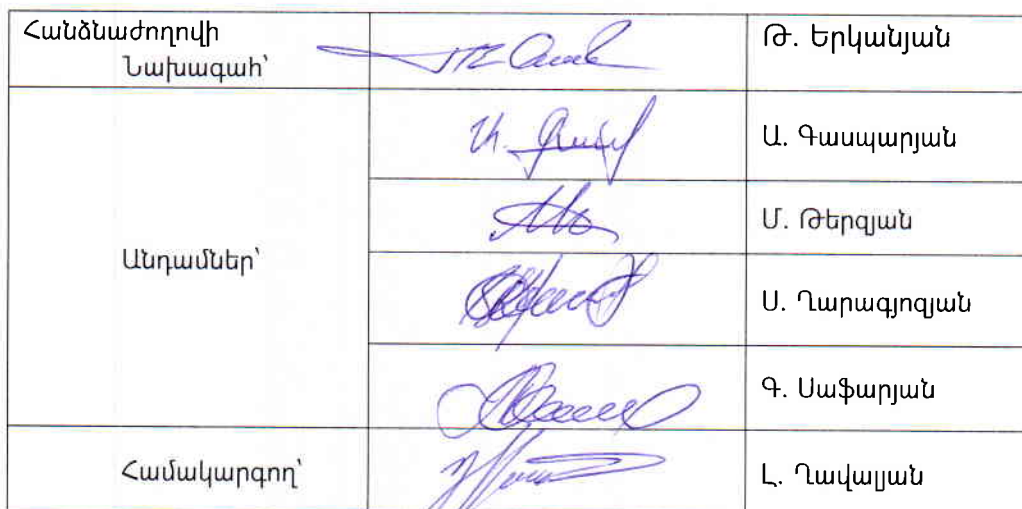 Հանձնաժողովի
Նախագահ՝
Թ. Երկանյան
Անդամներ՝
Ա. Գասպարյան
Մ. Թերզյան
Ս. Ղարագյոզյան
Գ. Սաֆարյան
Համակարգող՝
Լ. Ղավալյան